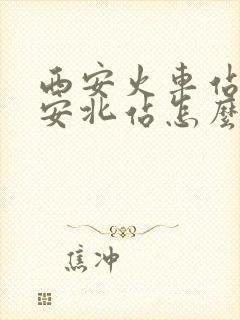 西安火車佔
安北佔怎麼
焦冲